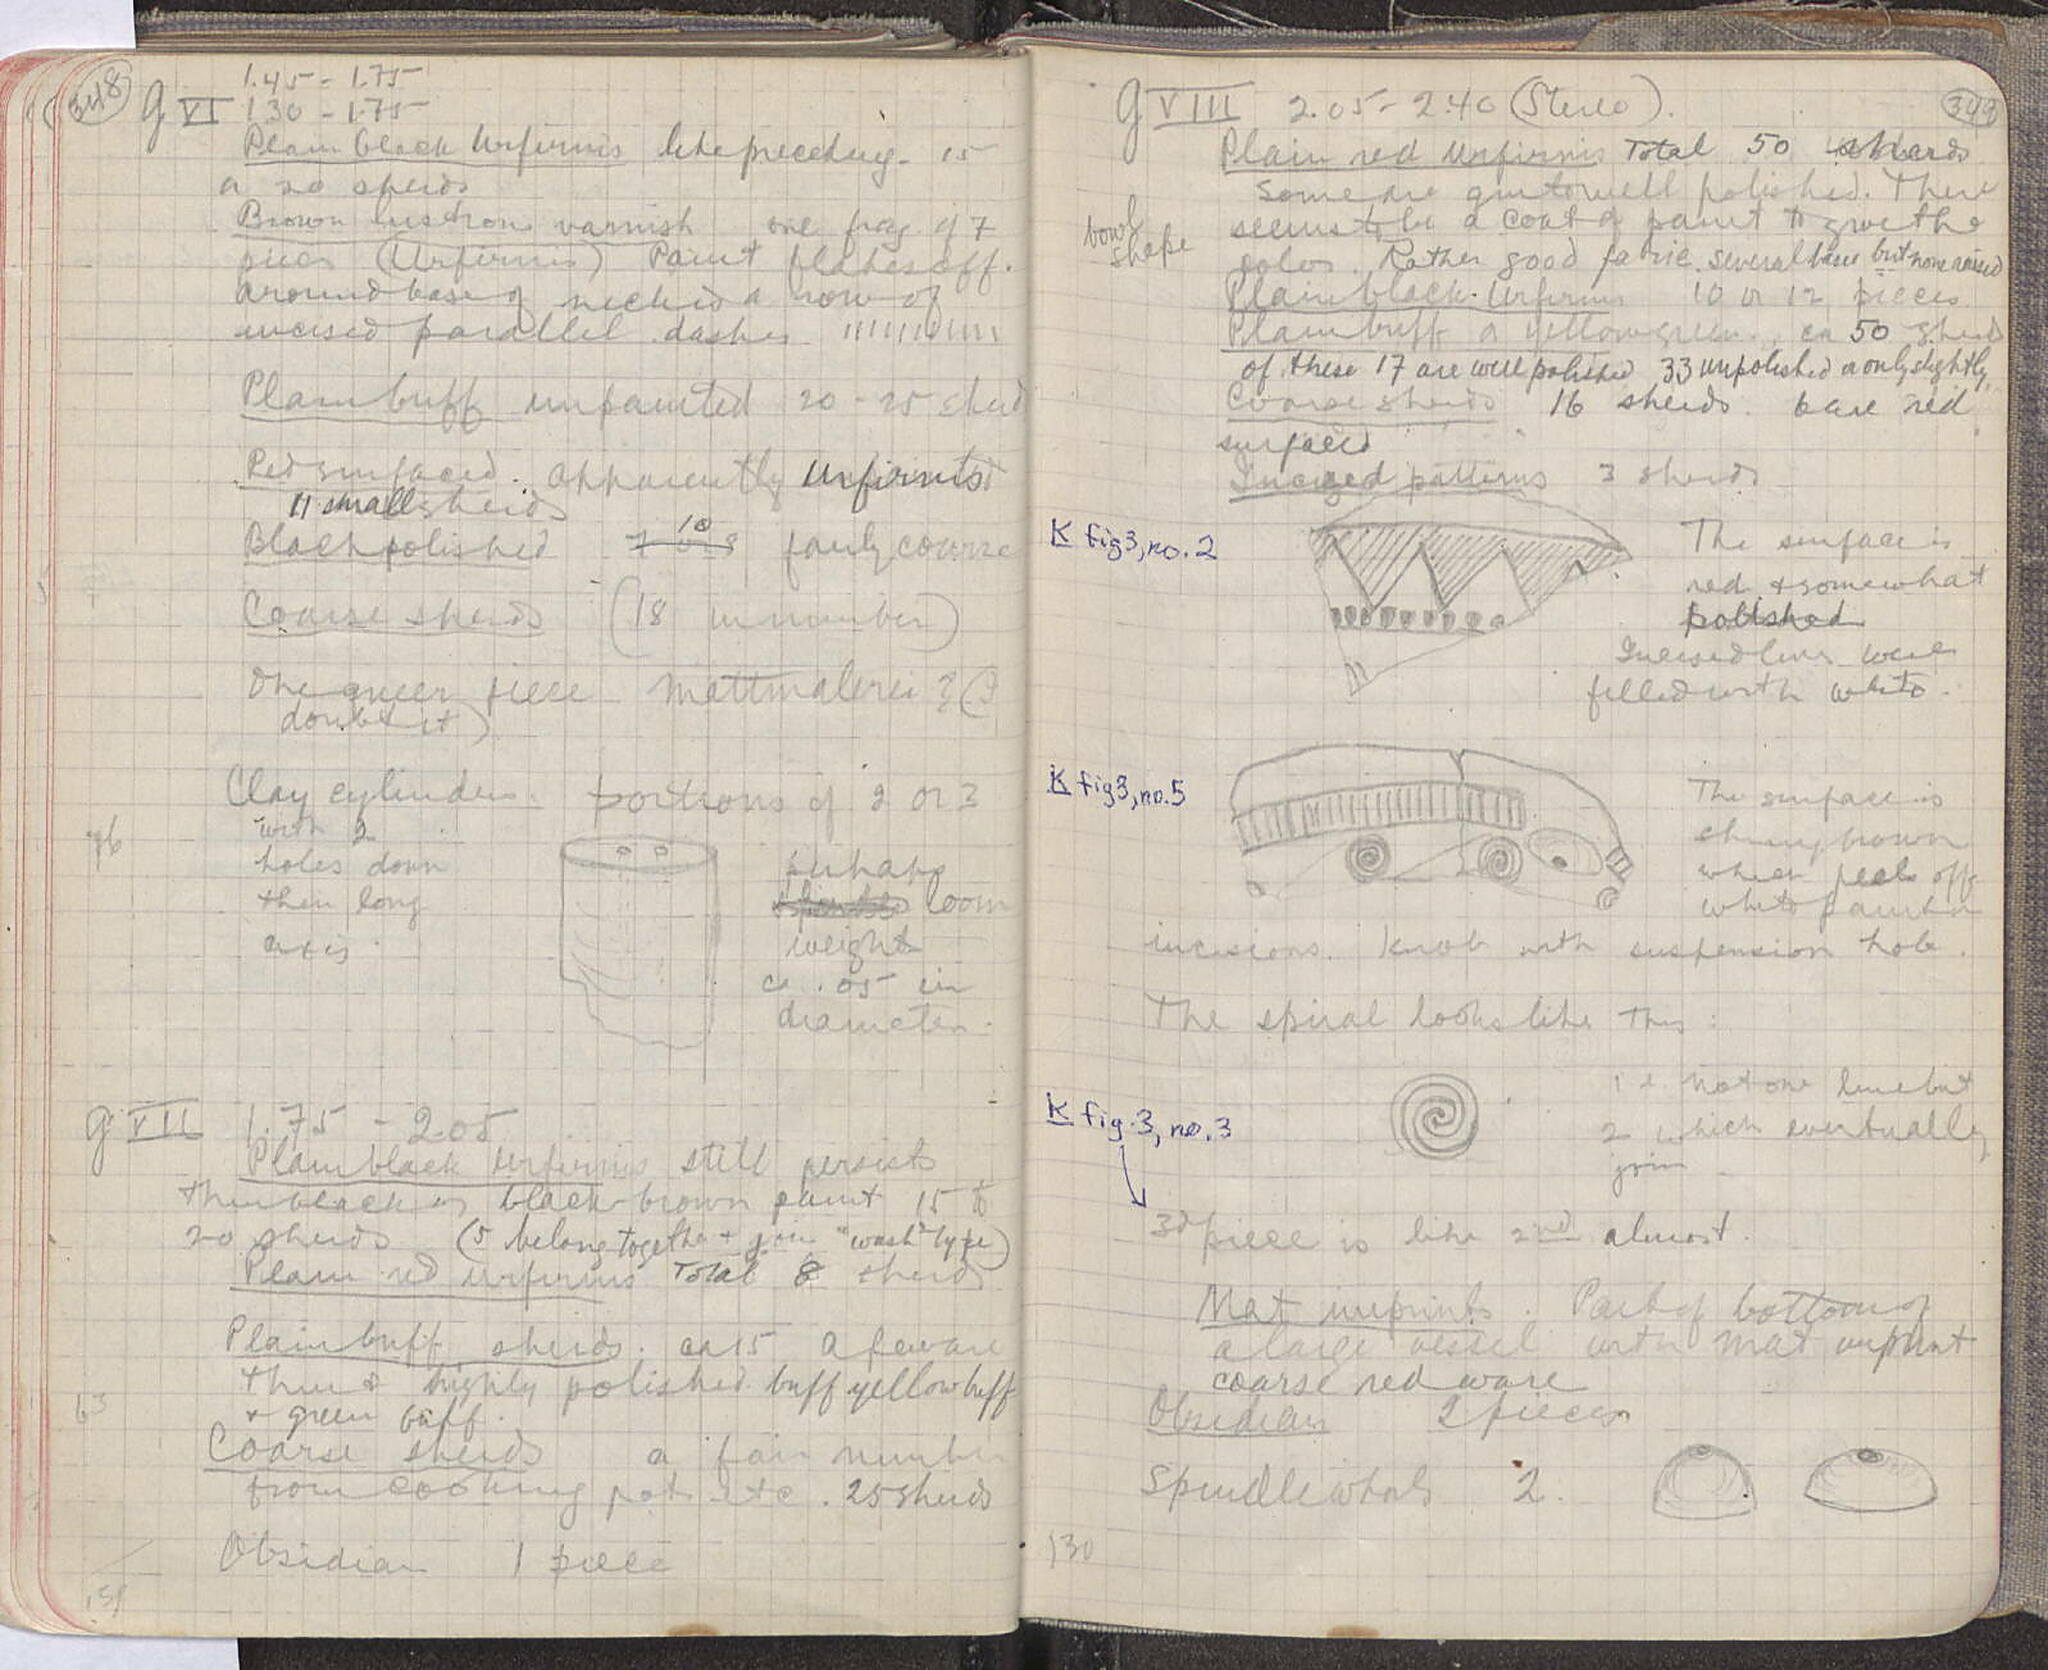 348
1.45 - 1.75
G VI 1.30 - 1.75
Plain black Urfirnis like preceding. 15
or 20 sherds
Brown lustrous varnish one frag. of 7
pieces (Urfirnis) Paint flakes off.
around base of neck is a row of
incised parallel dashes
Plain buff unpainted 20 - 25 sherds
Red surfaced. apparently Urfirnis
11 small sherds
Black polished 10 fairly coarse
Coarse sherds (18 in number)
One queer piece Mattmalerei? (I
doubt it)
Clay cylinders. portions of 2 or 3
with 2
holes down
their long
axis.
76
perhaps
loom
weight
ca .05 in
diameter.
G VII 1.75 - 2.05
Plain black urfirnis still persists
thin black or black-brown paint 15 to
20 sherds (5 belong together + join "wash" type)
Plain red urfirnis Total 8 sherds
Plain buff sherds. ca 15 a few are
thin & highly polished buff yellow buff
+ green buff.
63
Coarse sherds a fair number
from cooking pots etc. 25 sherds
Obsidian 1 piece
349
G VIII 2.05 - 2.40 (Stereo).
Plain red Urfirnis Total 50 sherds
Some are quite well polished. There
seems to be a coat of paint to give the
bowl
shape
color. Rather good fabric. Several bases but none raised
Plain black. Urfirnis 10 or 12 pieces
Plain buff or yellow green. ca 50 sherds
of these 17 are well polished 33 unpolished or only slightly
Coarse sherds 16 sherds. 6 are red
surfaced
Incized patterns 3 sherds
K fig 3, no. 2
The surface is
red & somewhat
polished
Incised lines were
filled with white.
K fig 3, no. 5
The surface is
shiny brown
where peels off
white paint in
incisions. Knob with suspension hole.
The spiral looks like this:
i e not one line but
2 which eventually
join.
K fig. 3, no. 3
3d piece is like 2nd almost.
Mat imprints. Part of bottom of
a large vessel with mat imprint
coarse red ware
Obsidian 2 pieces
Spindle whorls 2.
130